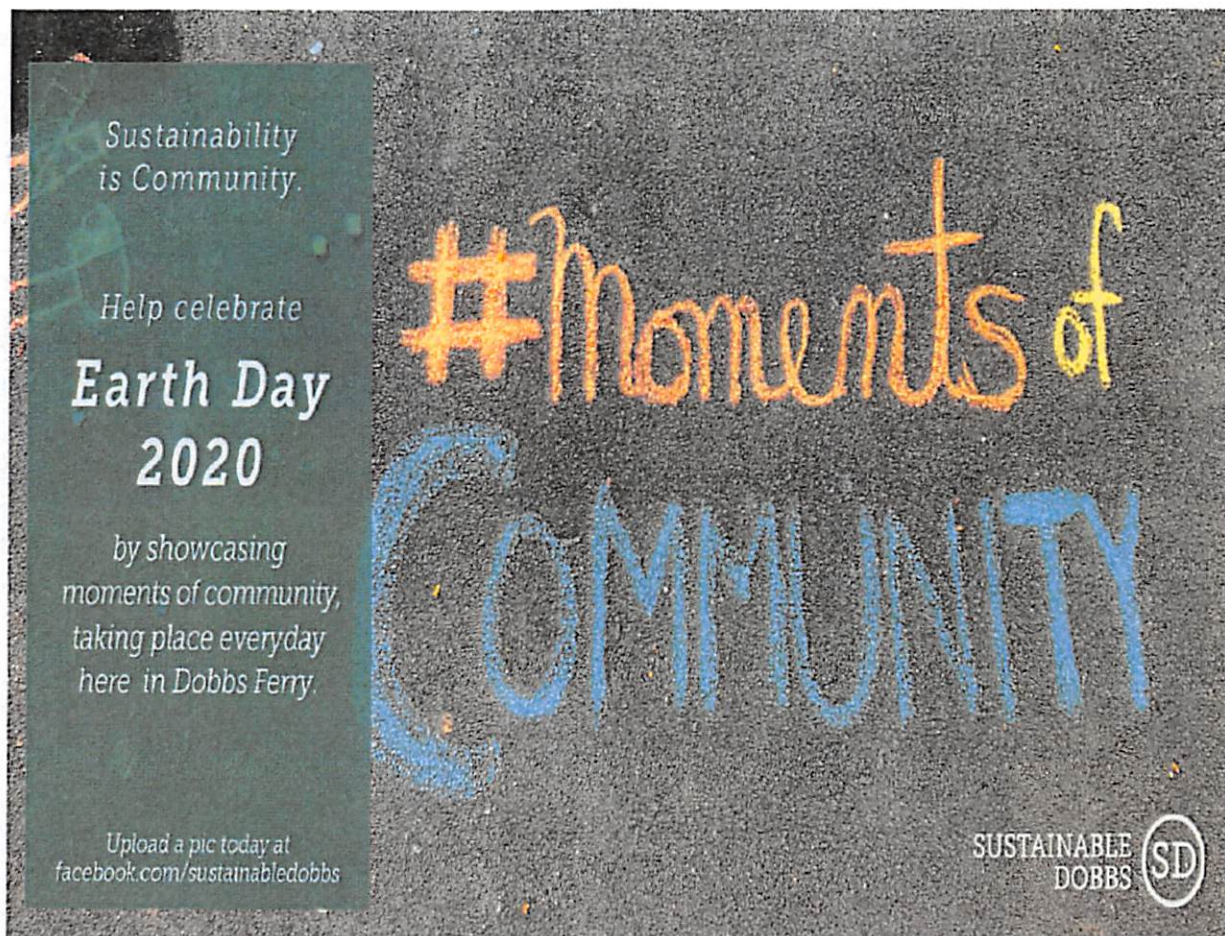 Sustainability
is Community.
Help celebrate
Earth Day
2020
by showcasing
moments of community,
taking place everyday
here in Dobbs Ferry.
Upload a pic today at
facebook.com/sustainabledobbs
#Moments of
COMMUNITY
SUSTAINABLE
DOBBS
SD